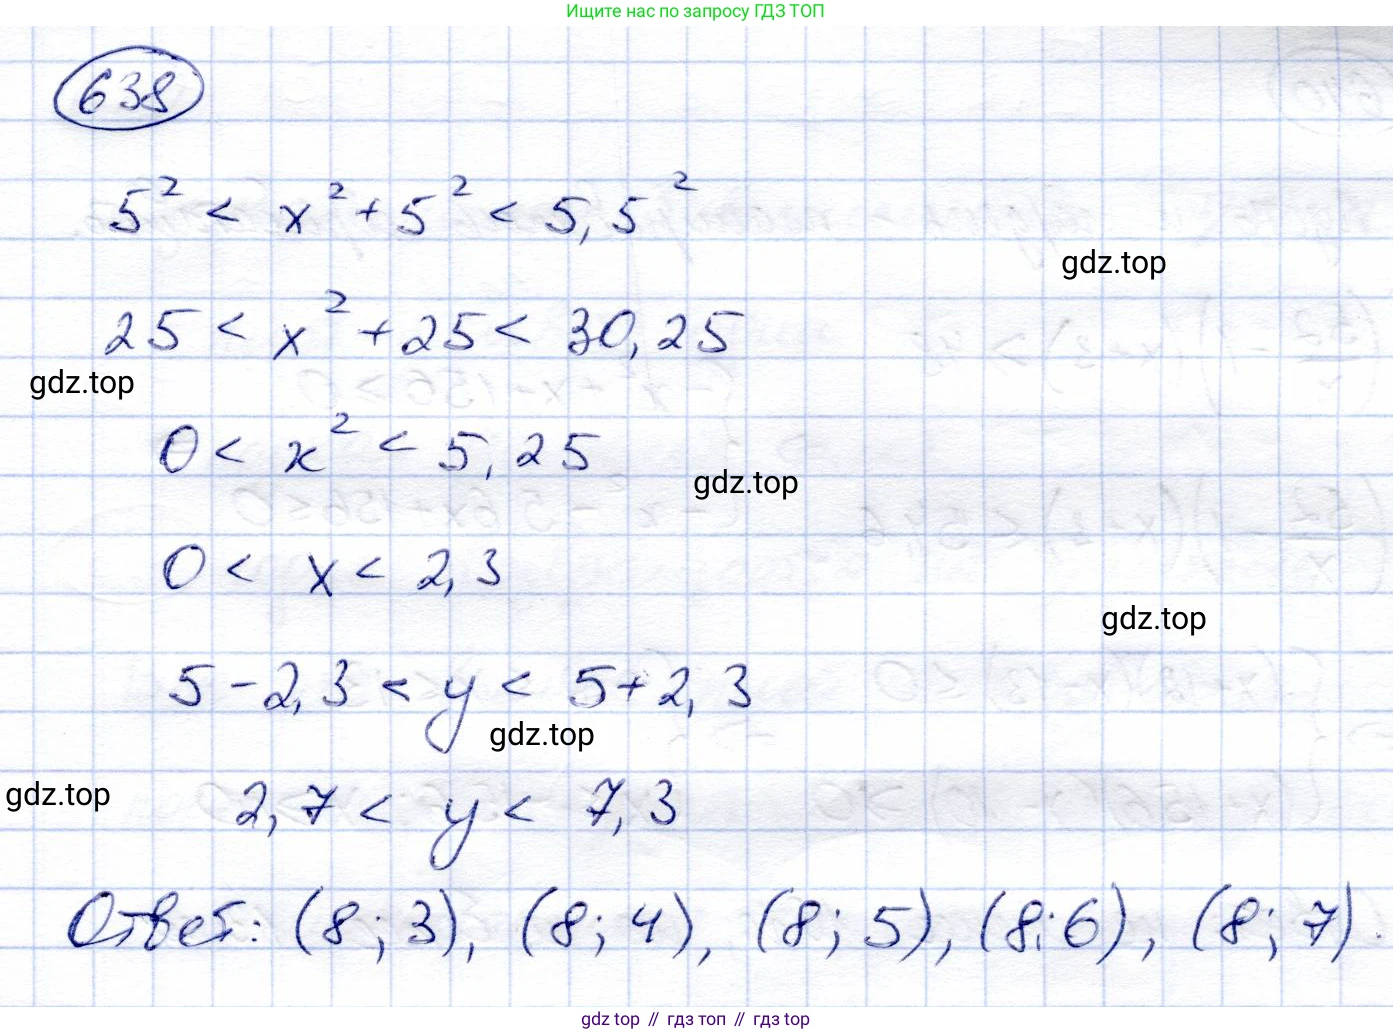 Ищите нас по запросу ГДЗ ТОП
638
5² < x² + 5² < 5,5²
gdz.top
25 < x² + 25 < 30,25
gdz.top
0 < x² < 5,25
gdz.top
0 < x < 2,3
gdz.top
5 - 2,3 < y < 5 + 2,3
gdz.top
gdz.top
2,7 < y < 7,3
Ответ: (8; 3), (8; 4), (8; 5), (8; 6), (8; 7).
gdz top // гдз топ // гдз top